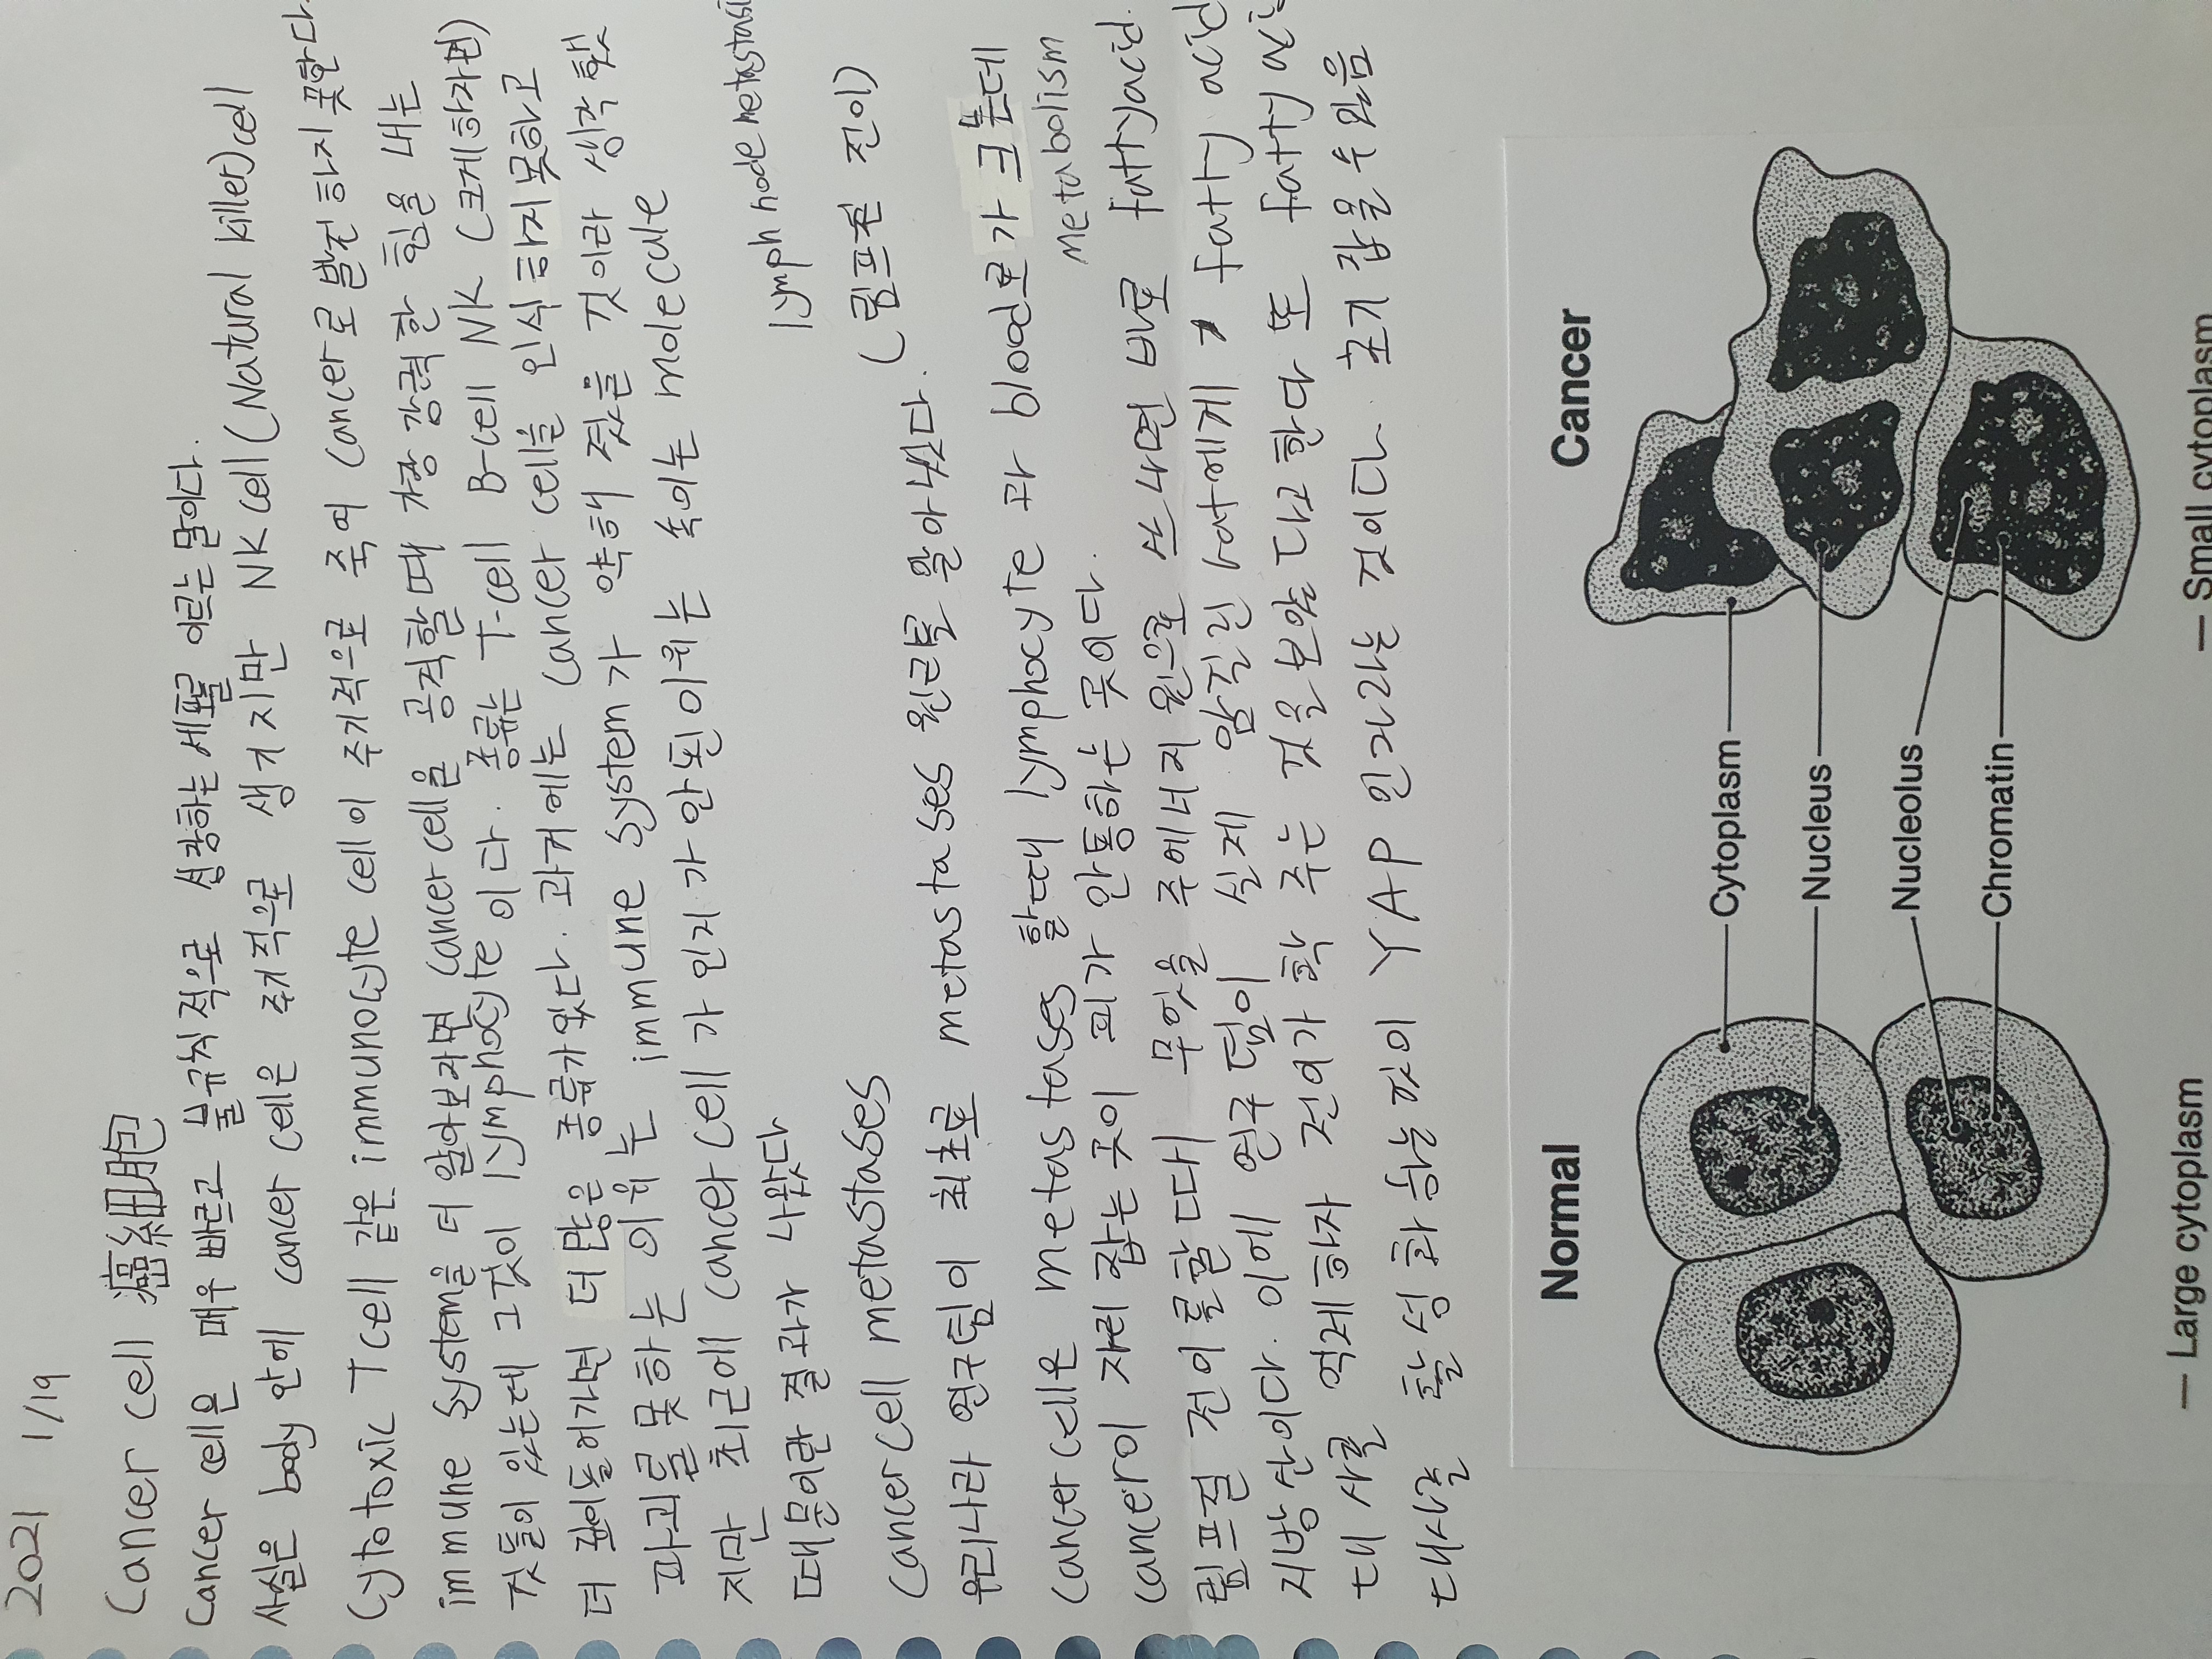 2021 1/19
Cancer cell 癌細胞
Cancer cell은 매우 빠르고 불규칙적으로 성장하는 세포를 이르는 말이다.
사실은 body 안에 cancer cell은 주기적으로 생기지만 NK cell (Natural killer) cell
Cytotoxic T cell 같은 immunocyte cell이 주기적으로 죽여 cancer로 발전하지 못한다.
immune system을 더 알아보자면 cancer cell을 공격할 때 가장 강력한 힘을 내는
것들이 있는데 그것이 lymphocyte이다. 종류는 T-cell B-cell NK (크게하자면)
더 깊이들어가면 더 많은 종류가있다. 과거에는 cancer cell을 인식하지 못하고
파괴를 못하는 이유는 immune system가 약해 졌을 것이라 생각 했
지만 최근에 cancer cell가 인지가 안된 이유는 속이는 molecule
때문이란 결과가 나왔다
lymph node metastasi
Cancer cell metastases
(림프절 전이)
우리나라 연구팀이 최초로 metastases 원리를 알아냈다.
cancer cell은 metastases 할때 lymphocyte 과 blood로가 크는데
cancer이 자리 잡는 곳이 피가 안통하는 곳이다.
metabolism
림프절 전이를할 때 무엇을 주에너지 원으로 쓰냐면 바로 fatty acid.
지방산이다. 이에 연구팀이 실제 암걸린 rat에게 fatty acid
대사를 억제하자 전이가 확 주는 것을 보았다고한다 또 fatty
대사를 활성화 하는것이 YAP 인자라는 것이다. 초기 잡을 수 있음
Normal
Cancer
Cytoplasm
Nucleus
Nucleolus
Chromatin
— Large cytoplasm
— Small cytoplasm